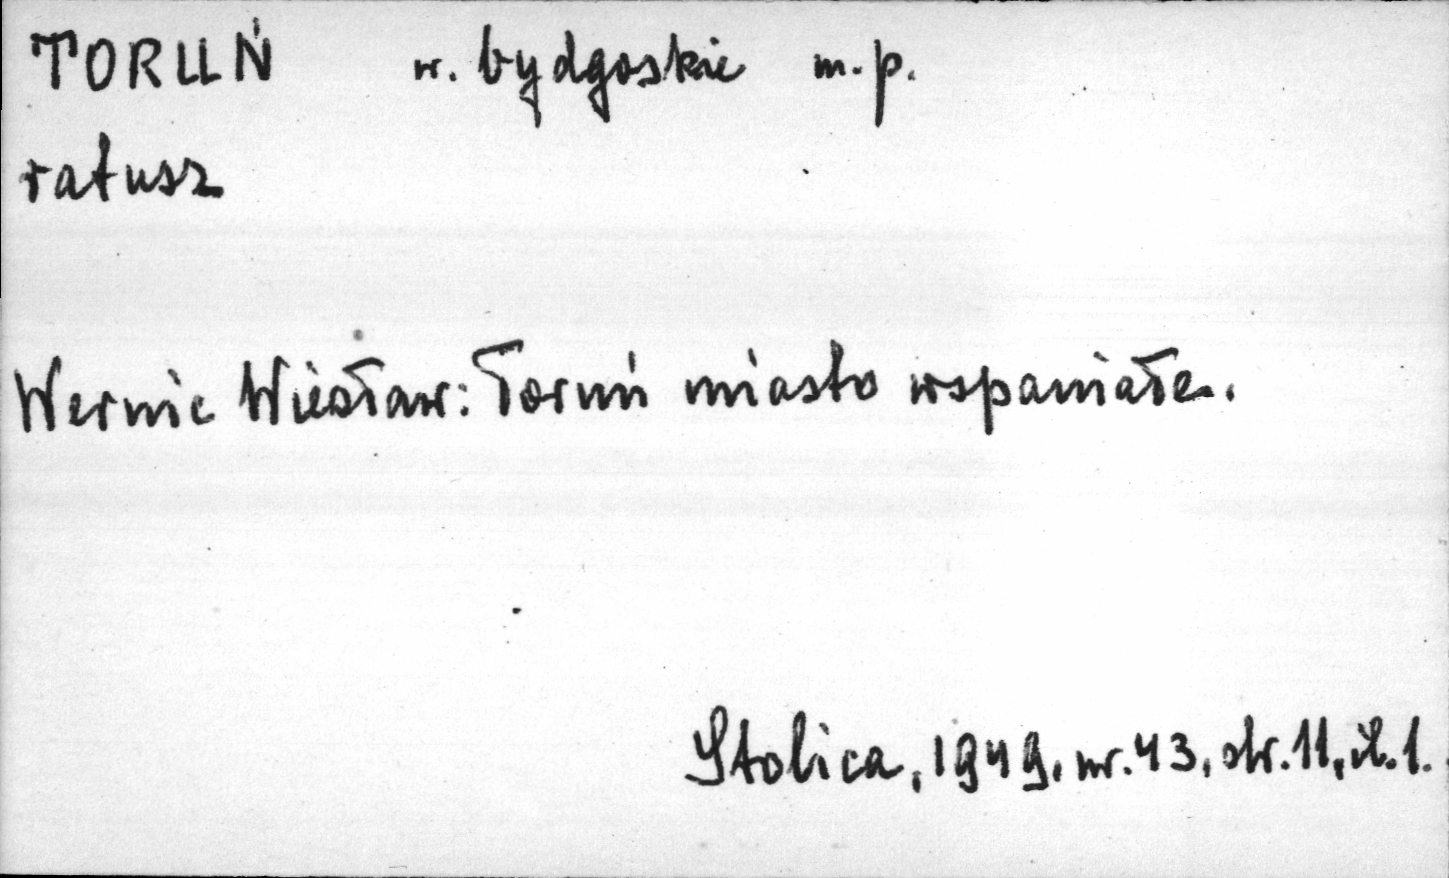 TORUŃ w. bydgoskie m.p.
ratusz
Wernic Wiesław: Toruń miasto wspaniałe.
Stolica, 1949, nr. 43, str. 11, il. 1.